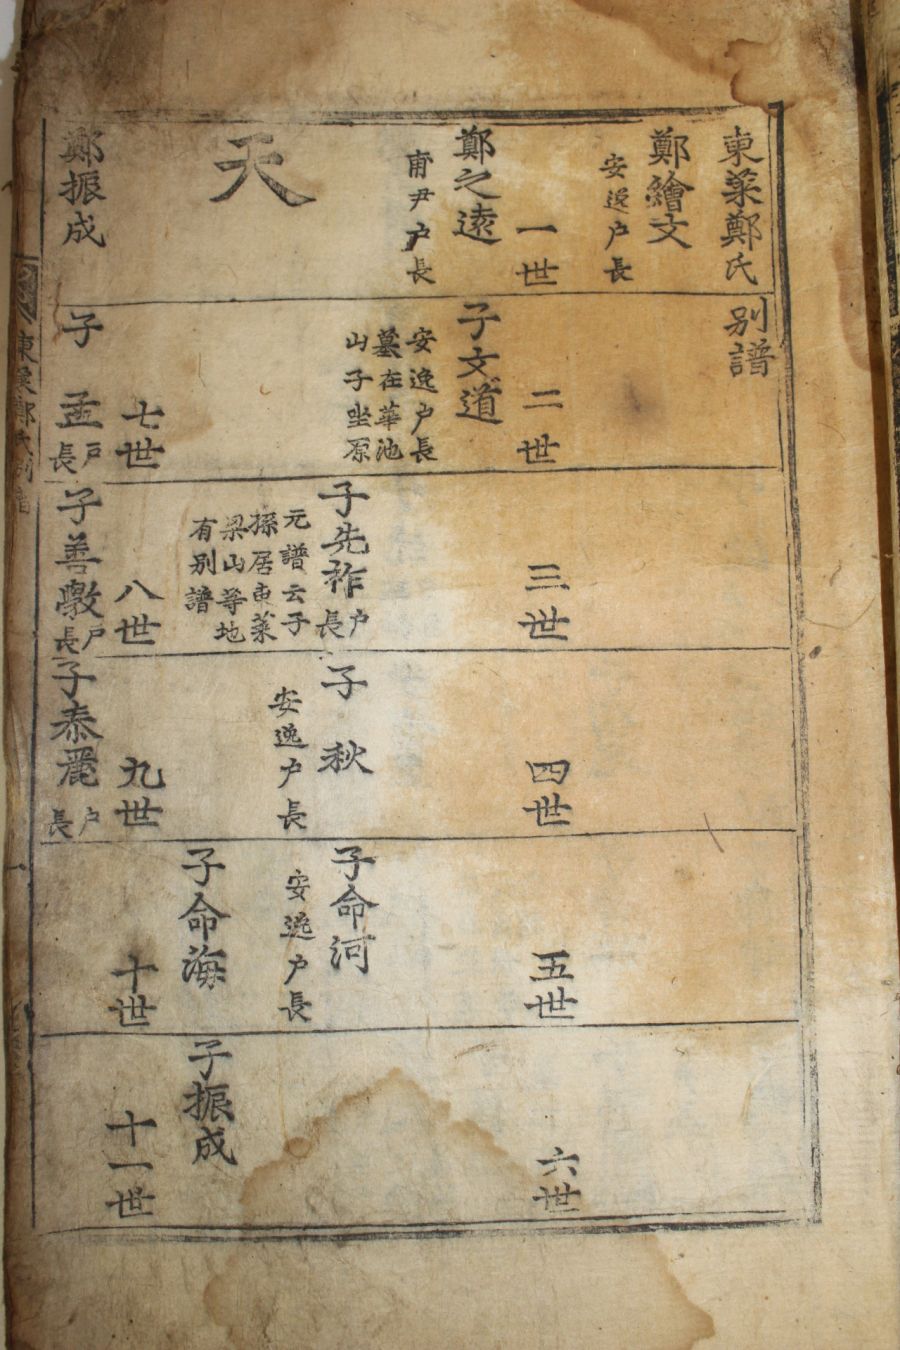 東萊鄭氏別譜
鄭繪文
安逸户長
一世
二世
三世
四世
五世
六世
鄭之遠
甫尹户長
子文道
安逸户長
墓在華池
山子坐原
子先祚户長
元譜云子
孫居東萊
梁山等地
有别譜
子秋
安逸户長
子命河
安逸户長
天
子命海
子振成
七世
八世
九世
十世
十一世
鄭振成
子孟户長
子善户長
子泰麗户長
東萊鄭氏別譜